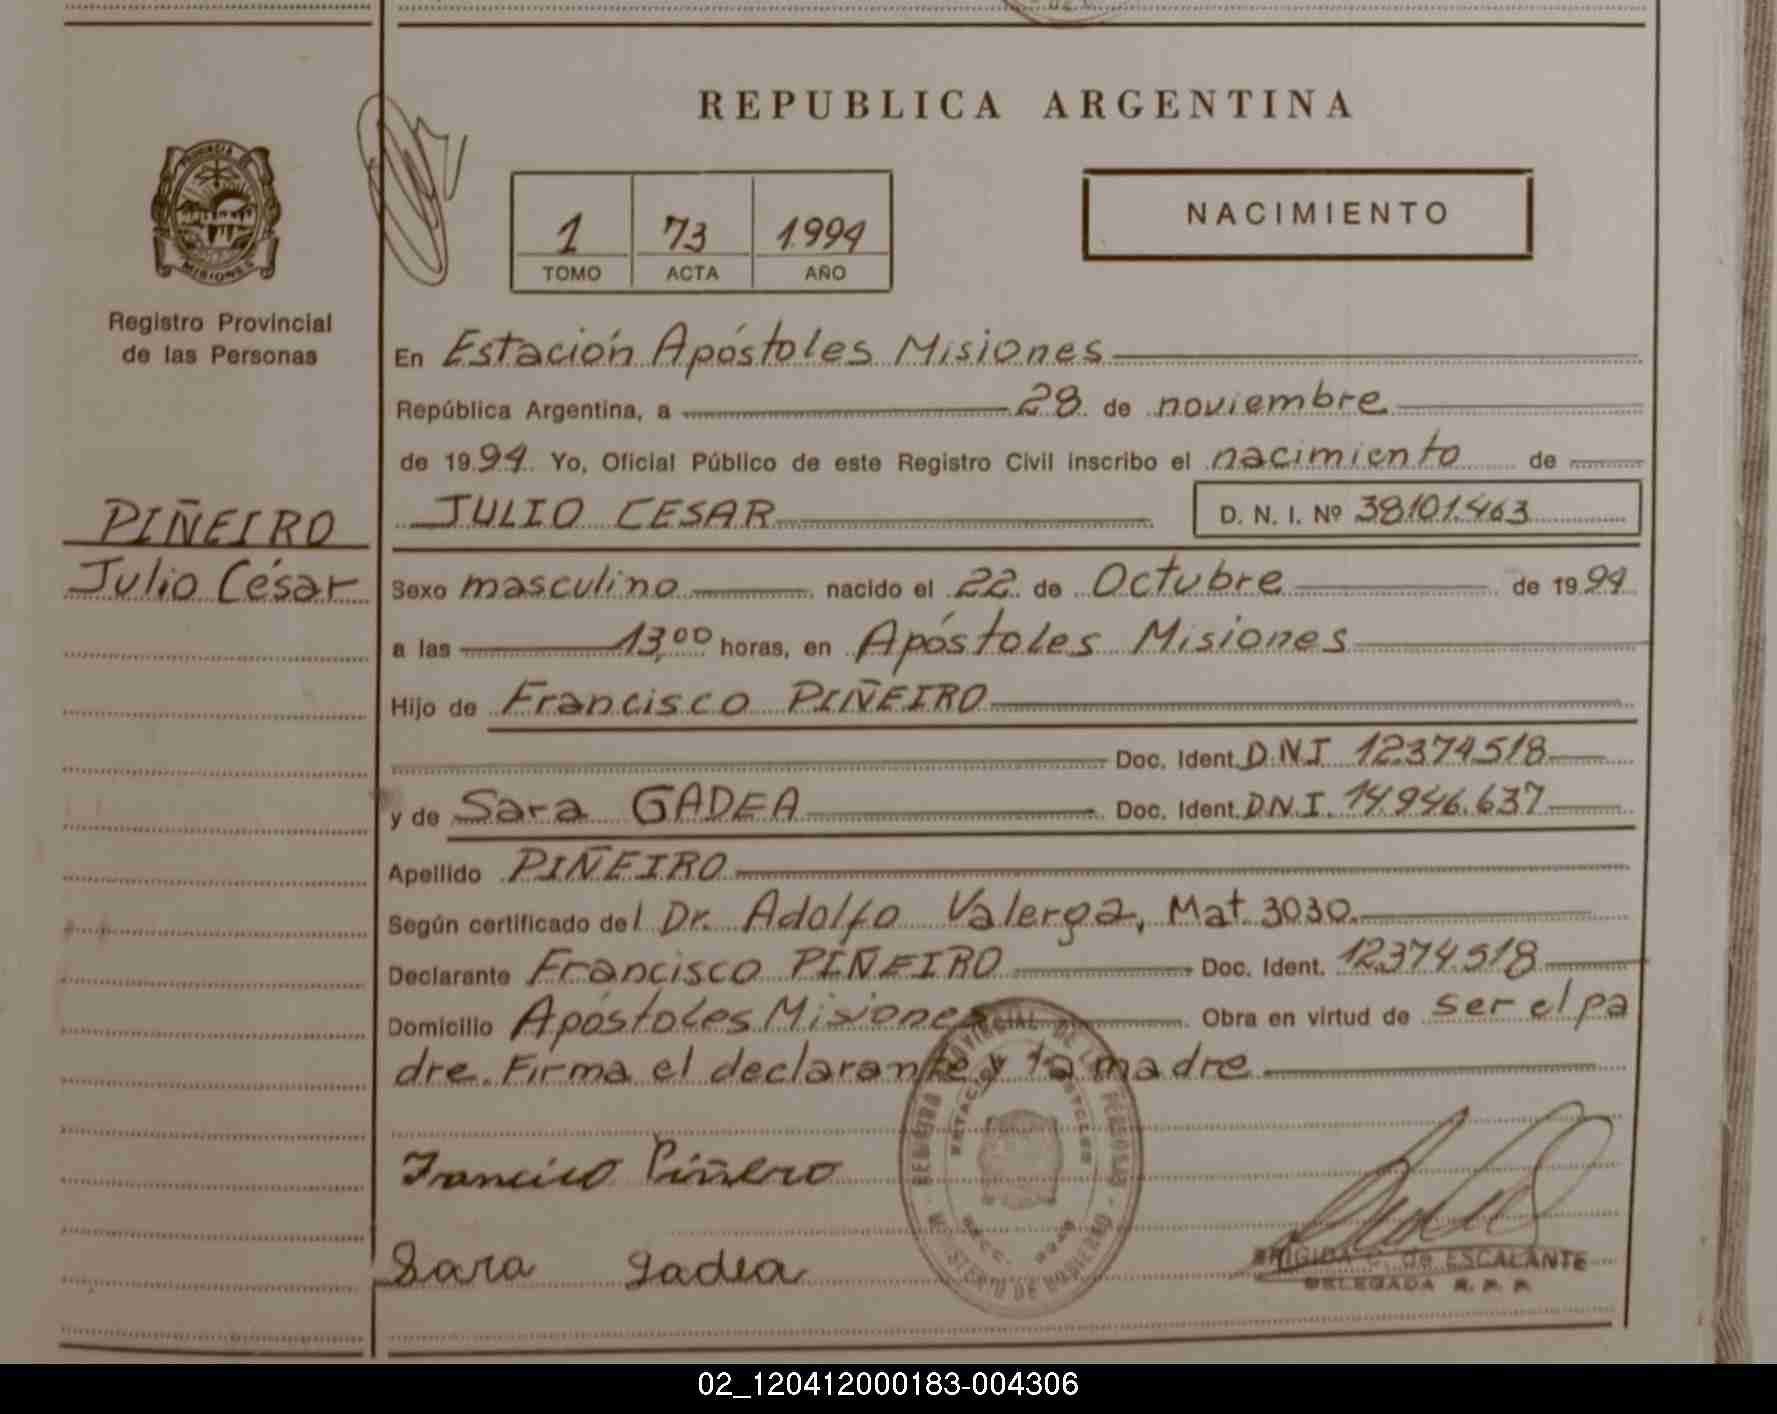 REPUBLICA ARGENTINA
PROVINCIA DE
MISIONES
Registro Provincial
de las Personas
1 73 1994
TOMO ACTA AÑO
NACIMIENTO
En Estación Apóstoles Misiones
República Argentina, a 28 de noviembre
de 1994 Yo, Oficial Público de este Registro Civil inscribo el nacimiento de
JULIO CESAR D. N. I. Nº 38.101.463
PIÑEIRO
Julio César
Sexo masculino nacido el 22 de Octubre de 1994
a las 13,00 horas, en Apóstoles Misiones
Hijo de Francisco PIÑEIRO
Doc. Ident. D.N.I 12374518
y de Sara GADEA Doc. Ident. D.N.I. 14.946.637
Apellido PIÑEIRO
Según certificado del Dr. Adolfo Valerga, Mat 3030.
Declarante Francisco PIÑEIRO Doc. Ident. 12374518
Domicilio Apóstoles Misiones Obra en virtud de ser el pa
dre. Firma el declarante y la madre
REGISTRO PROVINCIAL DE LAS PERSONAS
Francisco Piñero
Sara Gadea
BRIGIDA C. de ESCALANTE
DELEGADA R. P. P.
02_120412000183-004306